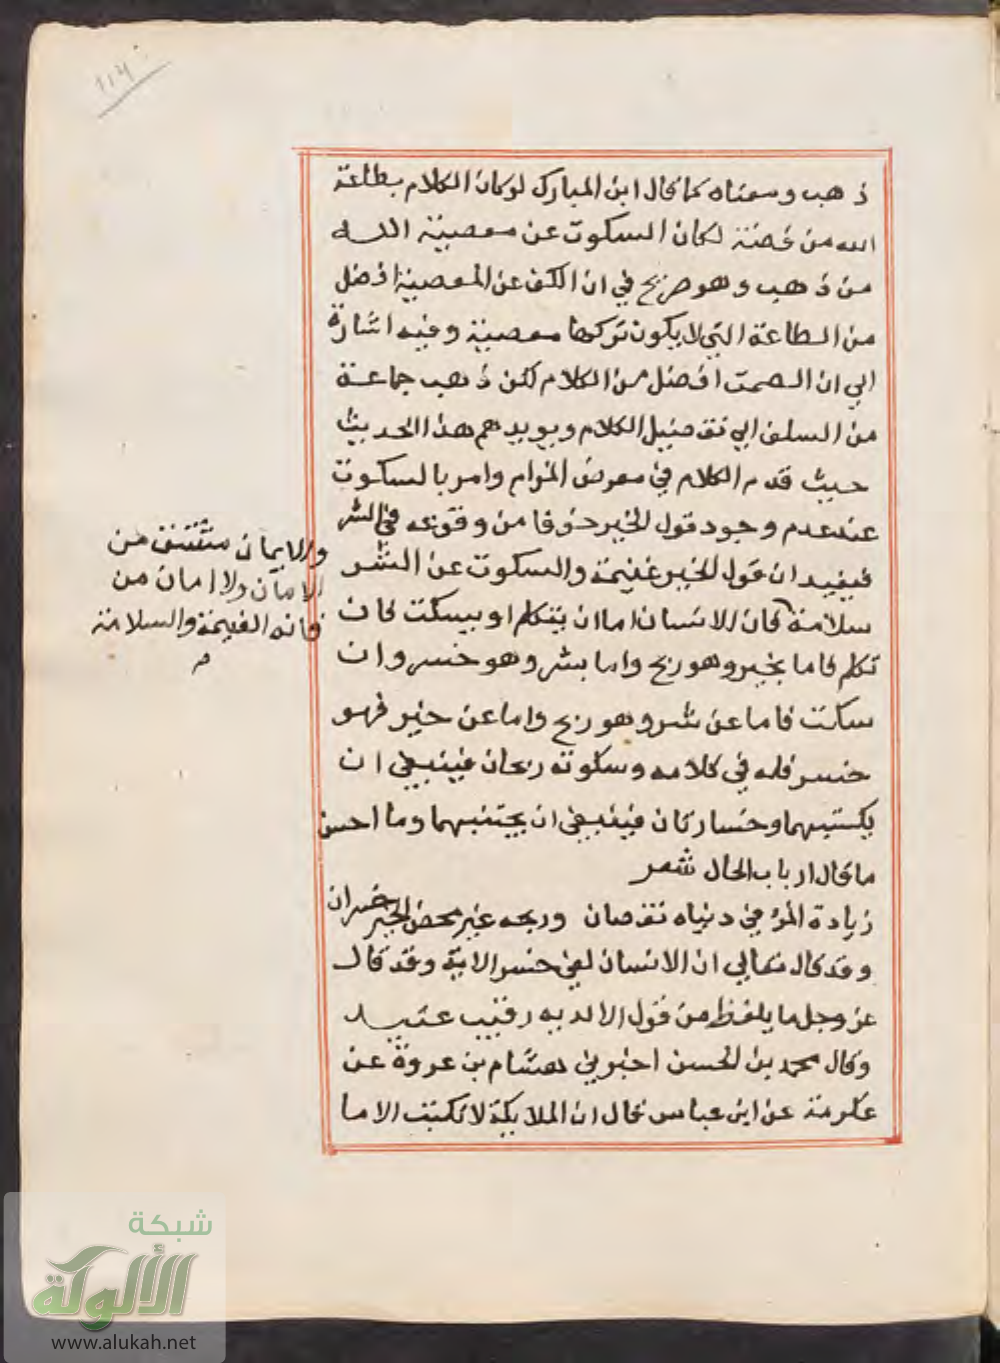 ١١٣
ذهب ومعناه كما قال ابن المبارك لو كان الكلام بطاعة
الله من فضة لكان السكوت عن معصية الله
من ذهب وهو صريح في ان الكف عن المعصية افضل
من الطاعة التي لا يكون تركها معصية وفيه اشارة
الي ان الصمت افضل من الكلام لكن ذهب جماعة
من السلف الي تفضيل الكلام ويويدهم هذا الحديث
حيث قدم الكلام في معرض المرام وامر بالسكوت
عند عدم وجود قول الخير خوفا من وقوعه في الشر
فيفيد ان قول الخير غنيمة والسكوت عن الشر
سلامة فان الانسان اما ان يتكلم او يسكت فان
تكلم فاما بخير وهو ربح واما بشر وهو خسر وان
سكت فاما عن شر وهو ربح واما عن خير فهو
خسر فله في كلامه وسكوته ربحان فينبغي ان
يكتسبهما وخسارتان فينبغي ان يجتنبهما وما احسن
ما قال ارباب الحال شعر
زيادة المرء في دنياه نقصان وربحه غير محض الخير خسران
وقد قال تعالي ان الانسان لفي خسر الاية وقد قال
عز وجل ما يلفظ من قول الا لديه رقيب عتيد
وقال محمد بن الحسن اخبرني هشام بن عروة عن
عكرمة عن ابن عباس قال ان الملايكة لا تكتب الا ما
والايمان مشتق من
الامان ولا امان من
فاته الغنيمة والسلامة
شبكة
الألوكة
www.alukah.net